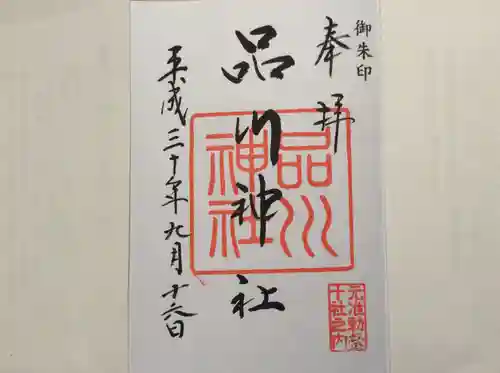 御朱印
奉拝
品川神社
平成三十年九月十六日
品川
神社
元准勅祭
十社之内